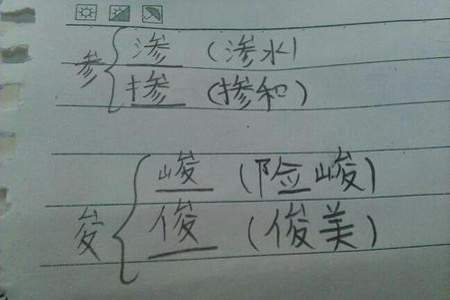 参 { 渗 (渗水)
掺 (掺和)
夋 { 峻 (险峻)
俊 (俊美)